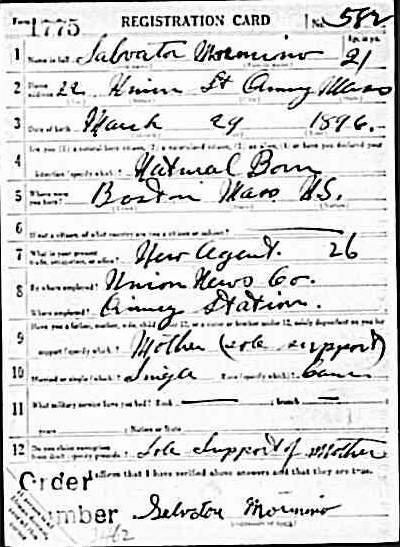 Form 1
1775 REGISTRATION CARD No. 582
1 Name in full Salvator Mormino 21
Age, in yrs.
2 Home address 22 Union St Mass
3 Date of birth March 29 1896.
Are you (1) a natural born citizen, (2) a naturalized citizen, (3) an alien, (4) or have you declared your
4 intention (specify which)? Natural Born
5 Where were you born? Boston Mass U.S.
6 If not a citizen, of what country are you a citizen or subject?
7 What is your present trade, occupation, or office? New Agent. 26
8 By whom employed? Union News Co.
Where employed? Station.
Have you a father, mother, wife, child under 12, or a sister or brother under 12, solely dependent on you for
9 support (specify which)? Mother (sole support)
10 Married or single (which)? Single Race (specify which)?
11 What military service have you had? Rank — branch —
years Nation or State
12 Do you claim exemption from draft (specify grounds)? Sole Support of Mother
I affirm that I have verified above answers and that they are true.
Order
Number
Salvator Mormino